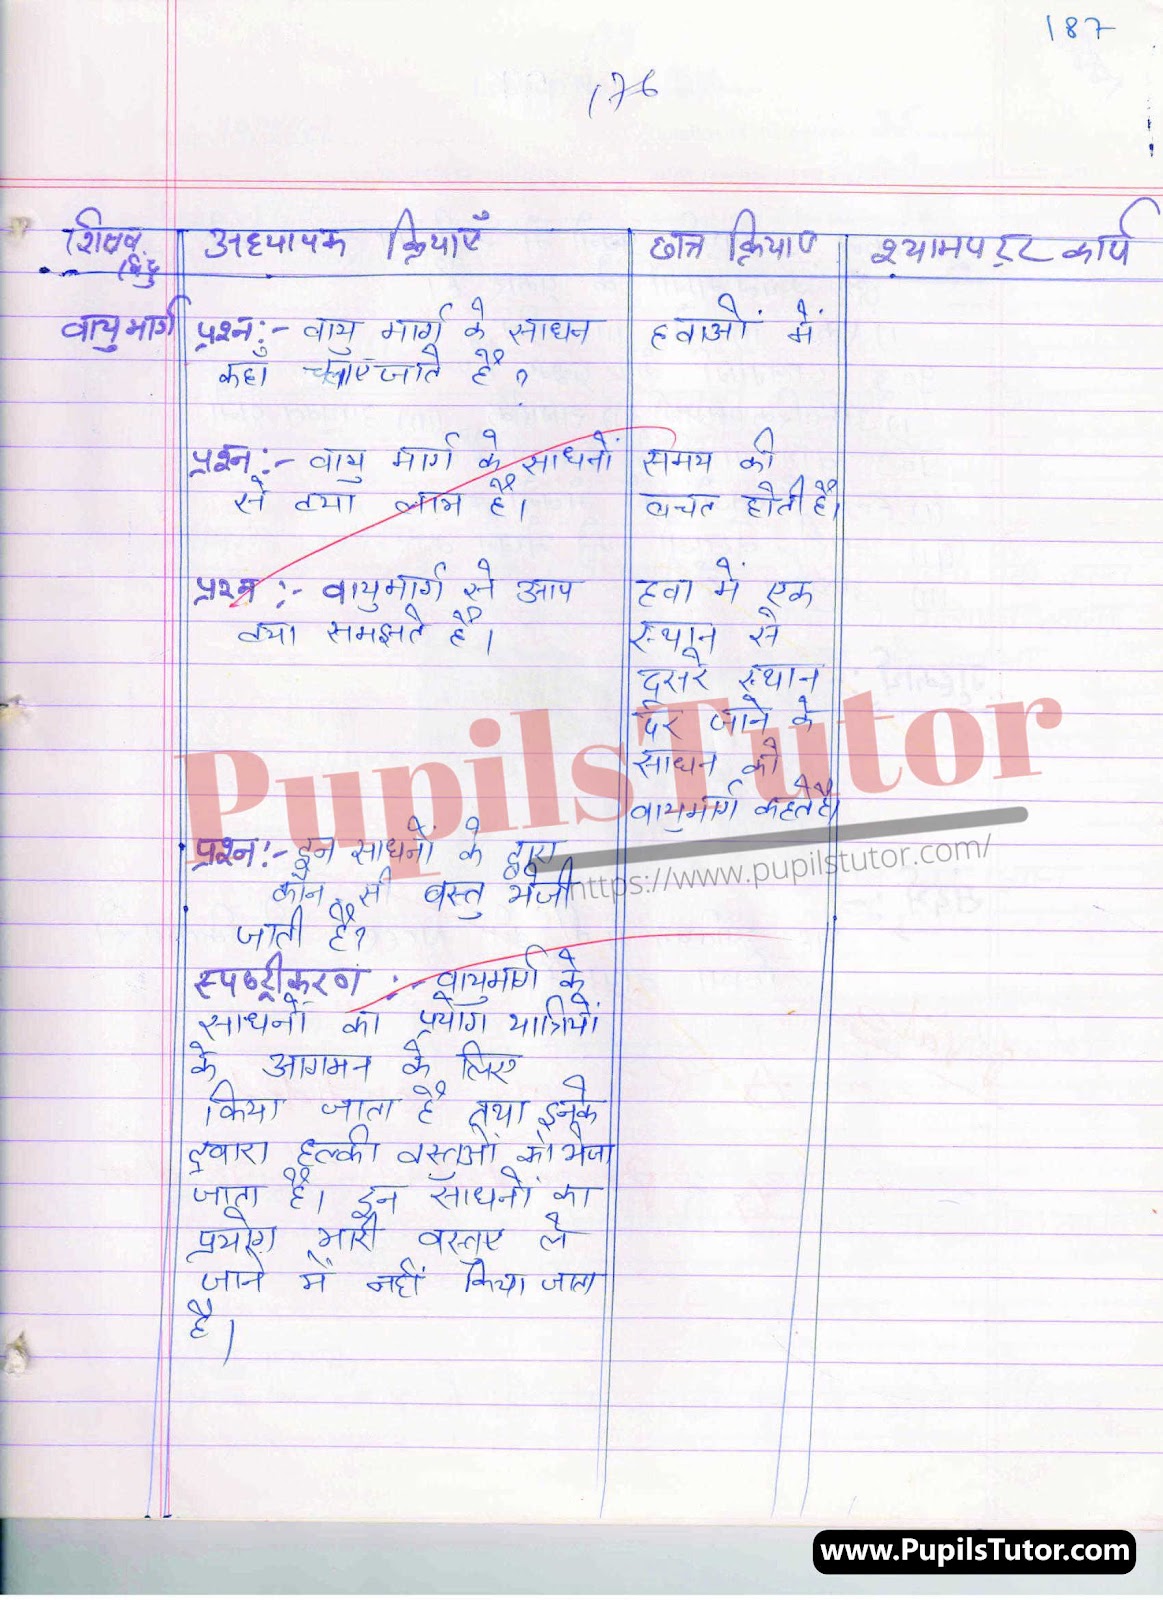 187
176
शिक्षण बिंदु
अध्यापक क्रियाएँ
छात्र क्रियाएं
श्यामपट्ट कार्य
वायुमार्ग
प्रश्न:- वायु मार्ग के साधन
कहां चलाए जाते हैं?
हवाओं में
प्रश्न:- वायु मार्ग के साधनों
से क्या लाभ है।
समय की
बचत होती है।
प्रश्न :- वायुमार्ग से आप
क्या समझते हैं।
हवा में एक
स्थान से
दूसरे स्थान
पर जाने के
साधन को
वायुमार्ग कहते हैं।
प्रश्न:- इन साधनों के द्वारा
कौन सी वस्तु भेजी
जाती है?
स्पष्टीकरण :- वायुमार्ग के
साधनों का प्रयोग यात्रियों
के आगमन के लिए
किया जाता है तथा इनके
द्वारा हल्की वस्तुओं को भेजा
जाता है। इन साधनों का
प्रयोग भारी वस्तुए ले
जाने में नहीं किया जाता
है।
PupilsTutor
https://www.pupilstutor.com/
www.PupilsTutor.com